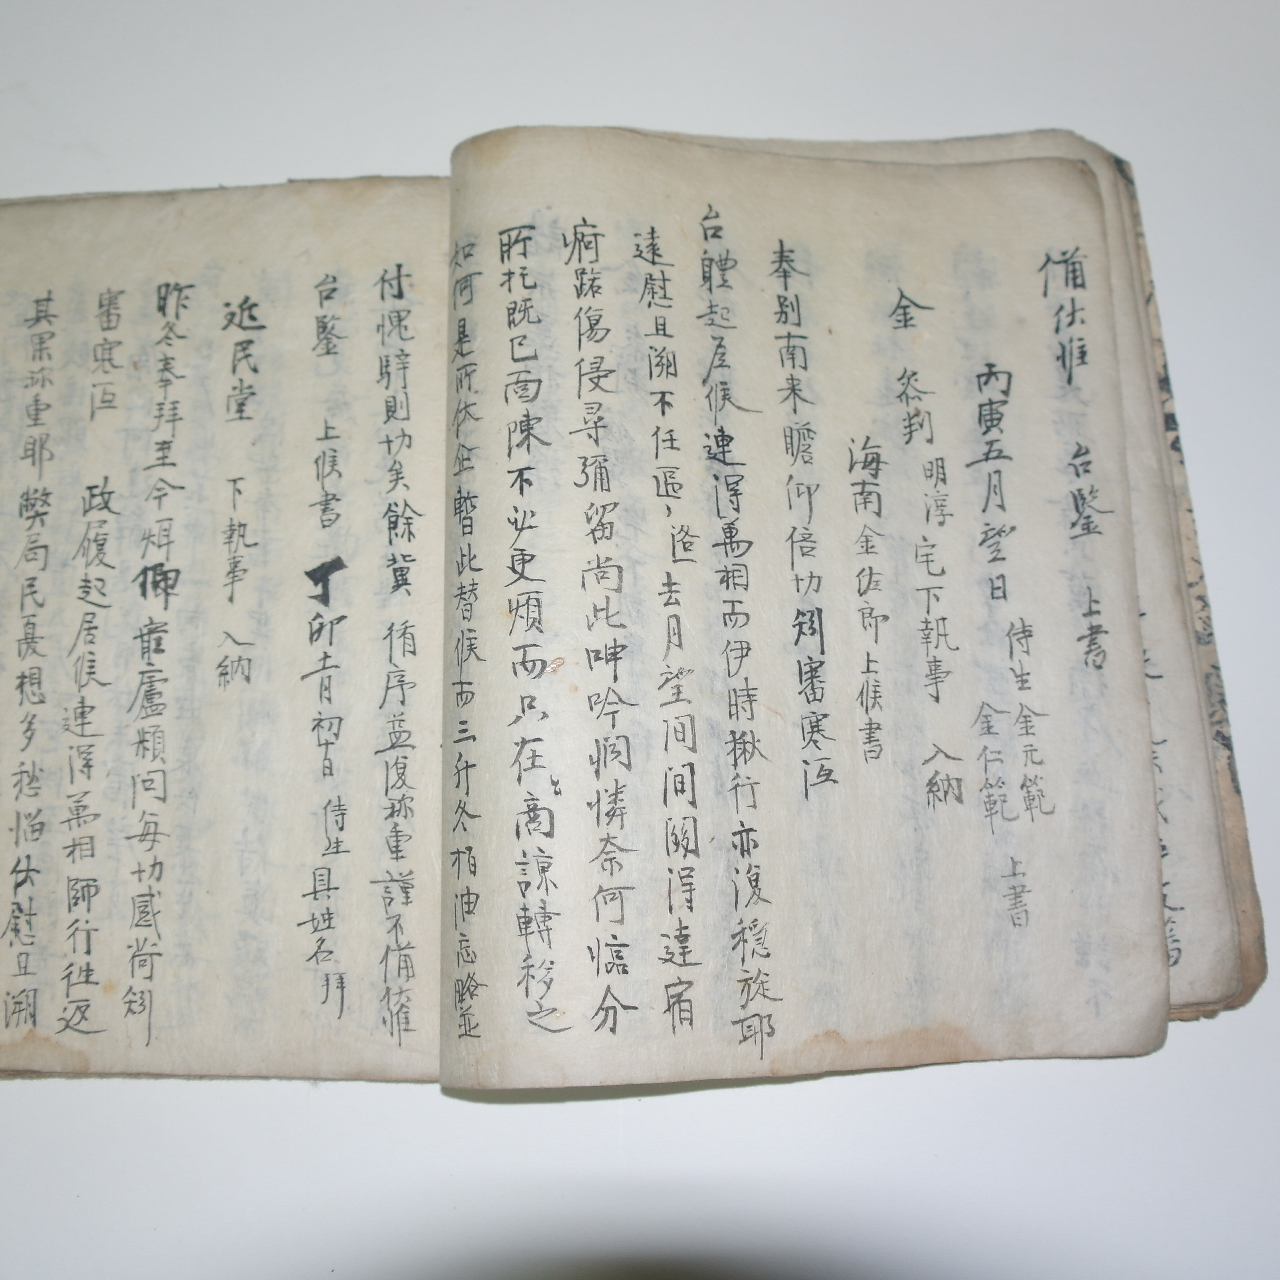 備伏惟 台鑒 上書
丙寅五月望日 侍生 金元範 金仁範 上書
金 叅判 明淳 宅 下執事 入納
海南金佐郎上候書
奉别南来瞻仰倍切矧審寒沍
台軆起居候連得萬相而伊時楸行亦復穩旋耶
遠慰且溯不任區〻 去月望間間關得達宿
痾踣傷侵尋彌留尚此呻吟悶憐奈何 分
所托既已面陳不必更煩而只在商諒轉移之
如何是所伏企暫此替候而三升冬柏油忘略並
付愧 則切矣餘冀 循序益復称重謹不備惟
台鑒 上候書 丁卯 月初 日 侍生具姓名 拜
近民堂 下執事 入納
昨冬奉拜至今 仰 廬頫问每切感尚矧
審寒沍 政履起居候連得萬相師行往返
其果称重耶弊局民憂想多愁惱伏慰且溯